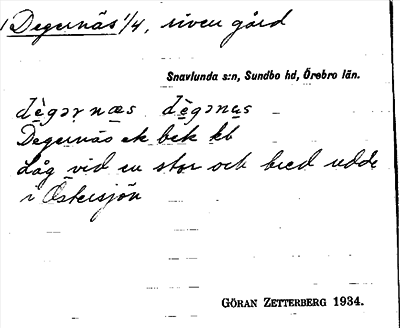 Degernäs 1/4, riven gård
Snavlunda s:n, Sundbo hd, Örebro län.
dègərnæs dègənas
Degernäs ek bek kb
Låg vid en stor och bred udde
i Östersjön
GÖRAN ZETTERBERG 1934.